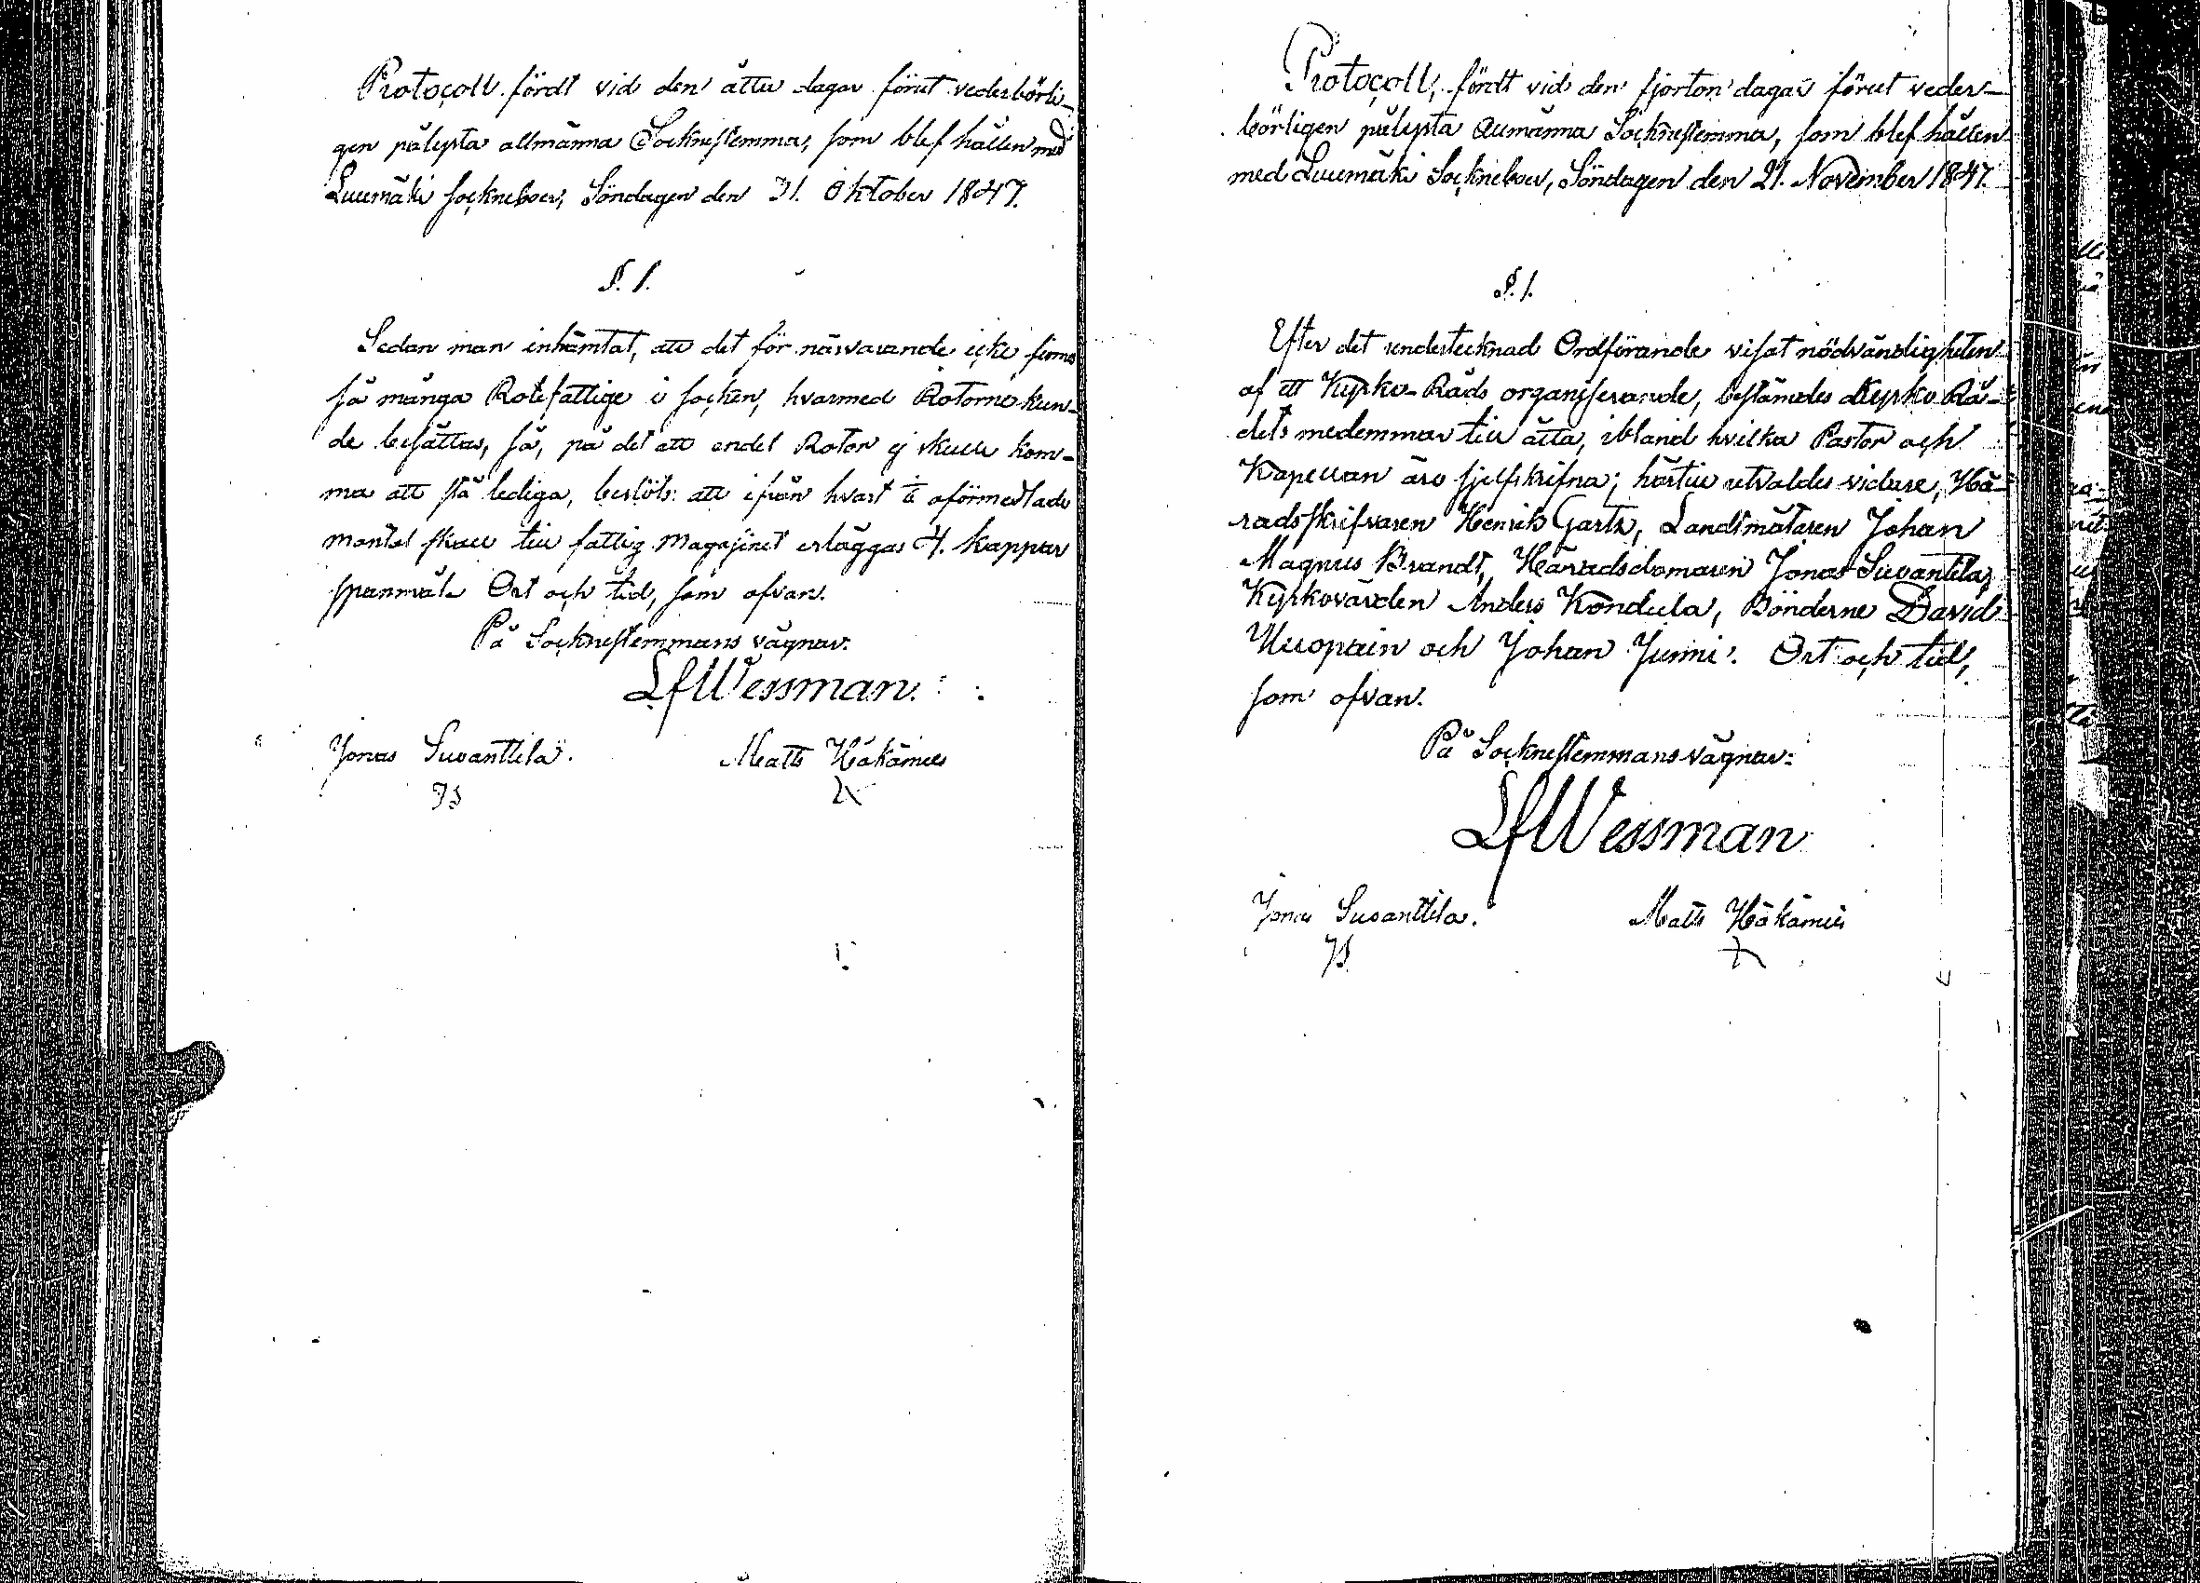 Protocoll fördt vid den åtta dagar förut vederbörli-
gen pålysta allmänna Sockneſtemma, ſom blef hållen med
Luumäki ſockneboer, Söndagen den 31. Oktober 1847.
§. 1.
Sedan man inhämtat, att det för närvarande icke finns
ſå många Rotefattige i ſocken, hvarmed Rotorne kun-
de beſättas, ſå, på det att endel Rotor ej skulle kom-
ma att stå lediga, beslöts: att ifrån hvart oförmedlade
mantal ſkall till fattig Magaſinet erläggas 4. kappar
ſpanmål. Ort och tid, ſom ofvan.
På Sockneſtemmans vägnar:
LfWessman.
Jonas Suvanttila. Matts Häkämies
JS
Protocoll, fördt vid den fjorton dagar förut veder-
börligen pålysta allmänna Sockneſtemma, ſom blef hållen
med Luumäki Sockneboer, Söndagen den 21. November 1847.
§. 1.
Efter det undertecknad Ordförande viſat nödvändigheten
af ett Kyrko-Råds organiſerande, beſtämdes Kyrko Rå-
dets medlemmar till åtta, ibland hvilka Pastor och
Kapellan äro ſjelfskrifna; härtill utvaldes vidare, Hä-
radsſkrifvaren Henrik Gartz, Landtmätaren Johan
Magnus Brandt, Häradsdomaren Jonas Suvantila,
Kyrkovärden Anders Kondula, Bönderne David
Uuopain och Johan Junni. Ort och tid,
ſom ofvan.
På Sockneſtemmans vägnar:
LfWessman
Jonas Suvanttila. Matts Häkämies
JS